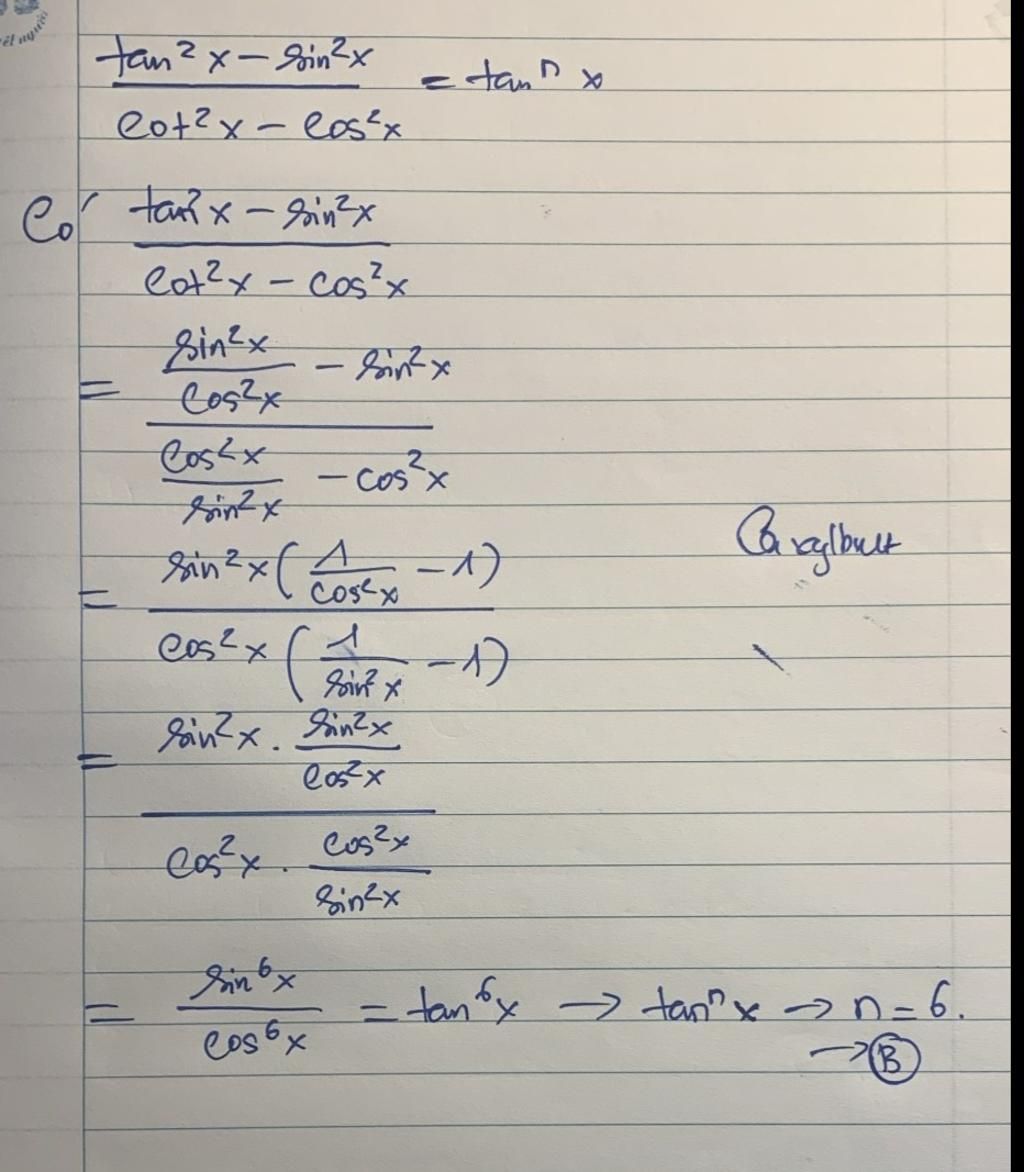 tan²x − sin²x / cot²x − cos²x = tanⁿ x
Có tan²x − sin²x / cot²x − cos²x
= (sin²x / cos²x − sin²x) / (cos²x / sin²x − cos²x)
= sin²x (1 / cos²x − 1) / cos²x (1 / sin²x − 1)
= (sin²x . sin²x / cos²x) / (cos²x . cos²x / sin²x)
= sin⁶x / cos⁶x = tan⁶x → tanⁿx → n = 6.
→ B